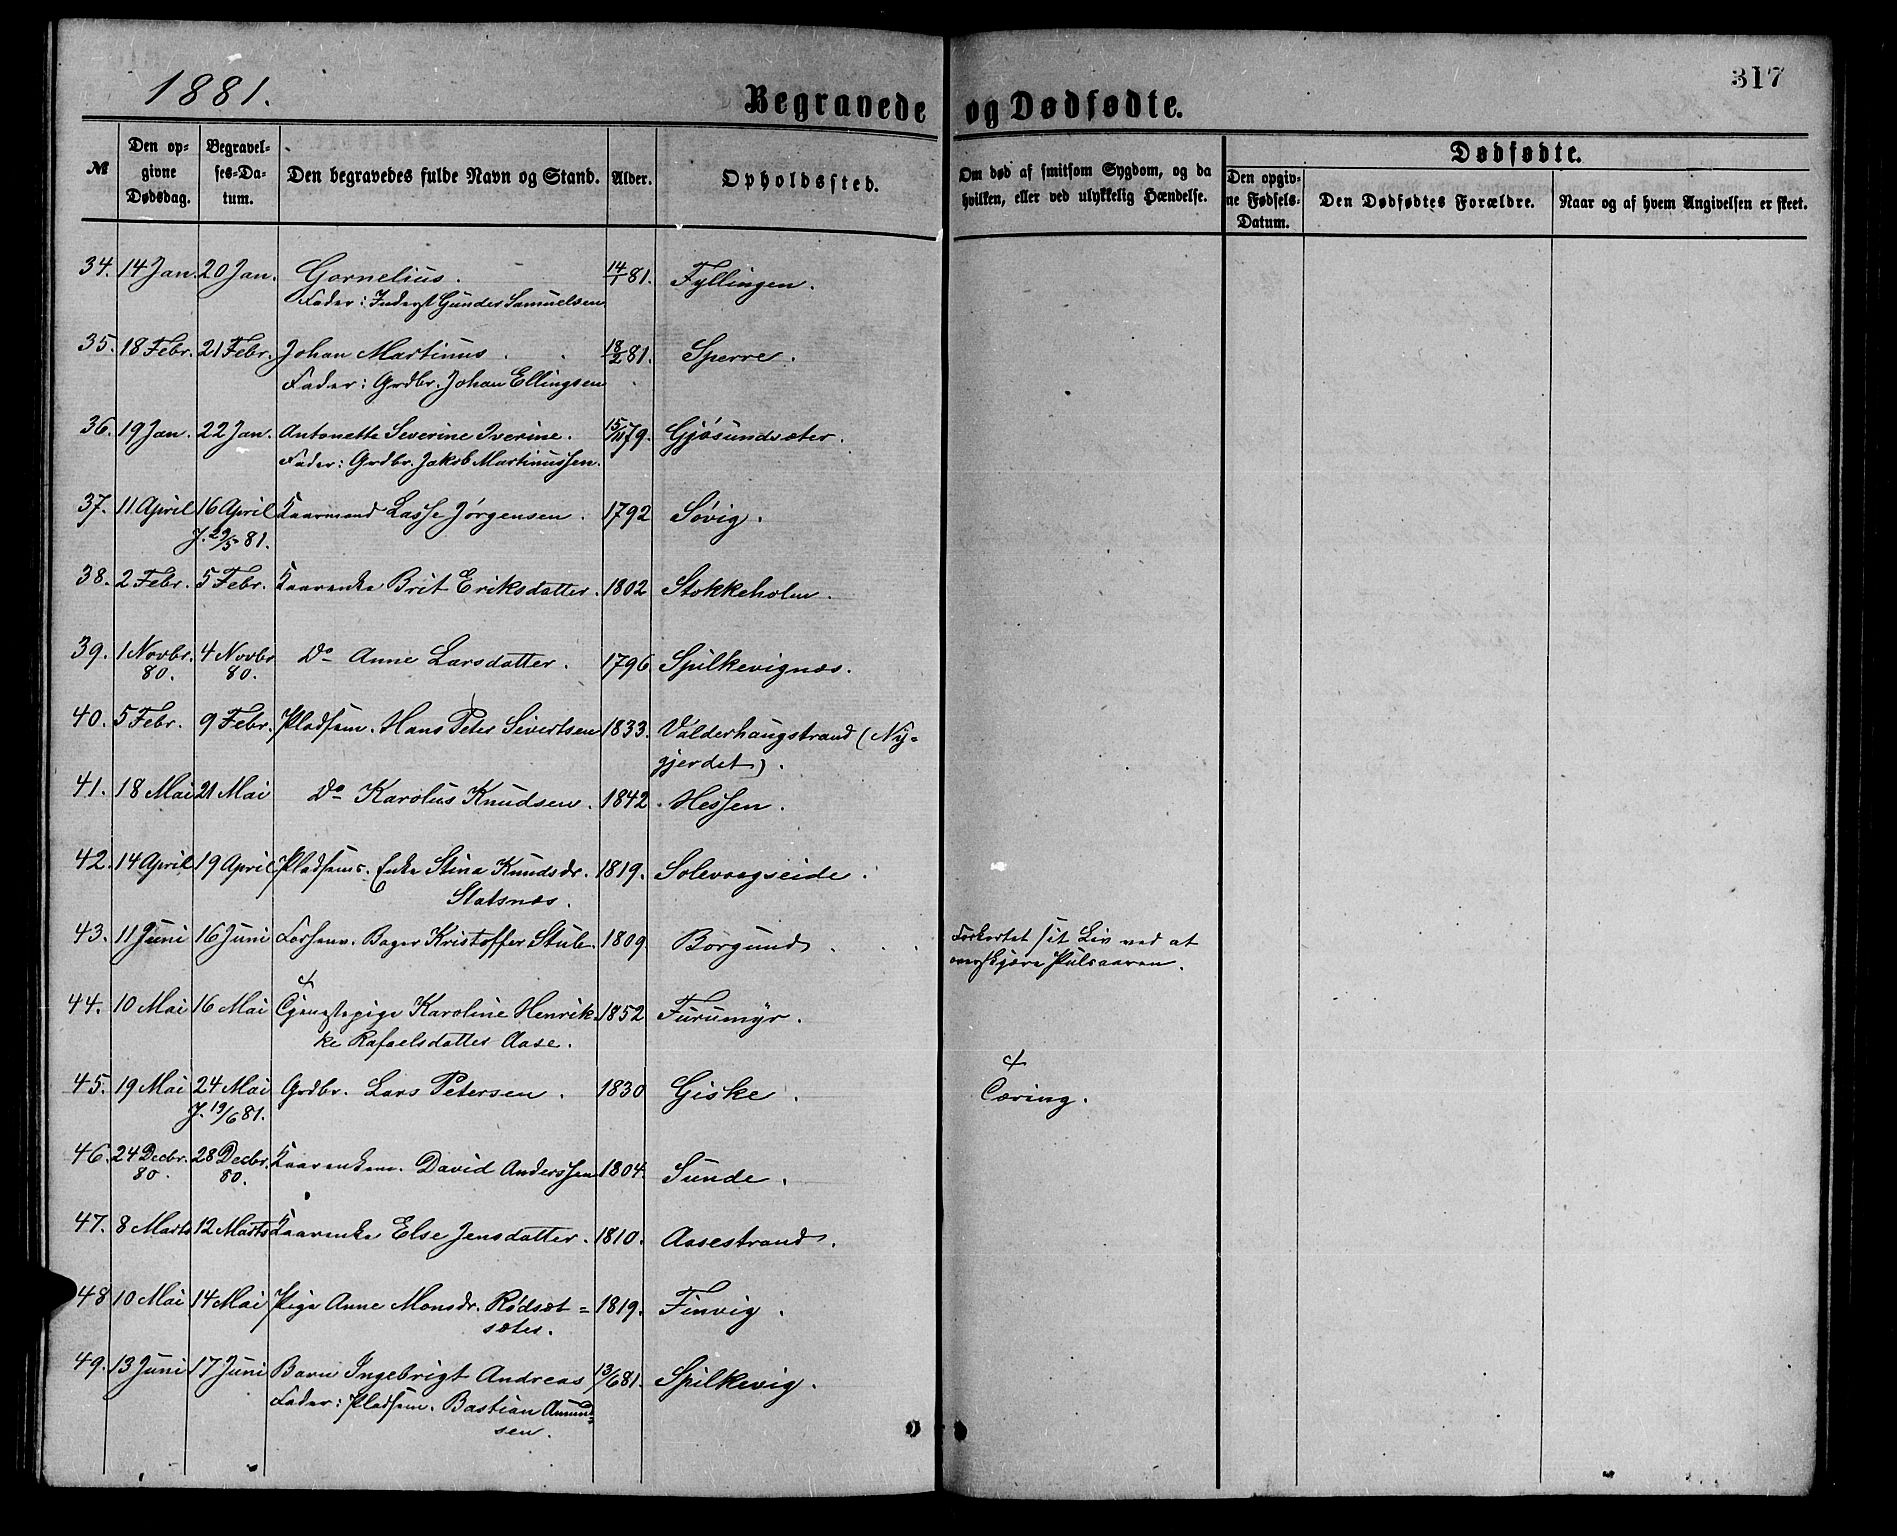 1881.
317
Begravede og Dødfødte.
№ Den opgivne Dødsdag. Begravelses-Datum. Den begravedes fulde Navn og Stand. Alder. Opholdssted. Om død af smitsom Sygdom, og da hvilken, eller ved ulykkelig Hændelse. Dødfødte. Den opgivne Fødsels-Datum. Den Dødfødtes Forældre. Naar og af hvem Angivelsen er skeet.
34. 14 Jan. 20 Jan. Cornelius. 14/1 81. Fyllingen.
Fader: Inderst Gunder Samuelsen
35. 18 Febr. 21 Febr. Johan Martinus. 18/2 81. Sperre.
Fader: Grdbr. Johan Ellingsen
36. 19 Jan. 22 Jan. Antonette Severine Iverine. 79. Gjøsundsæter.
Fader: Grdbr. Jakob Martinussen.
37. 11 April 16 April Kaarmand Lasse Jørgensen. 1792 Søvig.
J. 29/5 81.
38. 2 Febr. 5 Febr. Kaarenke Brit Eriksdatter. 1802 Stokkeholm.
39. 1 Novbr. 4 Novbr. Do Anne Larsdatter. 1796 Spilkevignæs.
80. 80.
40. 5 Febr. 9 Febr. Pladsem. Hans Peter Sivertsen 1833. Valderhaugstrand (Ny=
gjerdet).
41. 18 Mai 21 Mai Do Karolus Knudsen. 1842. Hessen.
42. 14 April 19 April Pladsems. Enke Stina Knudsdr. 1819. Solevaagseide.
Slatsnæs.
43. 11 Juni 16 Juni Forhenv. Bager Kristoffer Stub. 1809 Borgund. Forkortet sit Liv ved at
overskjære Pulsaaren.
44. 10 Mai 16 Mai Tjenestepige Karoline Henrik= 1852 Furumyr.
ke Rafaelsdatter Aase.
45. 19 Mai 24 Mai Grdbr. Lars Petersen. 1830 Giske. Tæring.
J. 19/6 81.
46. 24 Decbr. 28 Decbr. Kaarenkem. David Anderssen 1804. Sunde.
80. 80.
47. 8 Marts 12 Marts Kaarenke Else Jensdatter. 1810. Aasestrand.
48 10 Mai 14 Mai Pige Anne Monsdr. Rødsæt= 1819. Finvig.
sæter.
49. 13 Juni 17 Juni Barn Ingebrigt Andreas 13/6 81. Spilkevig.
Fader: Pladsem. Bastian Amund=
sen.